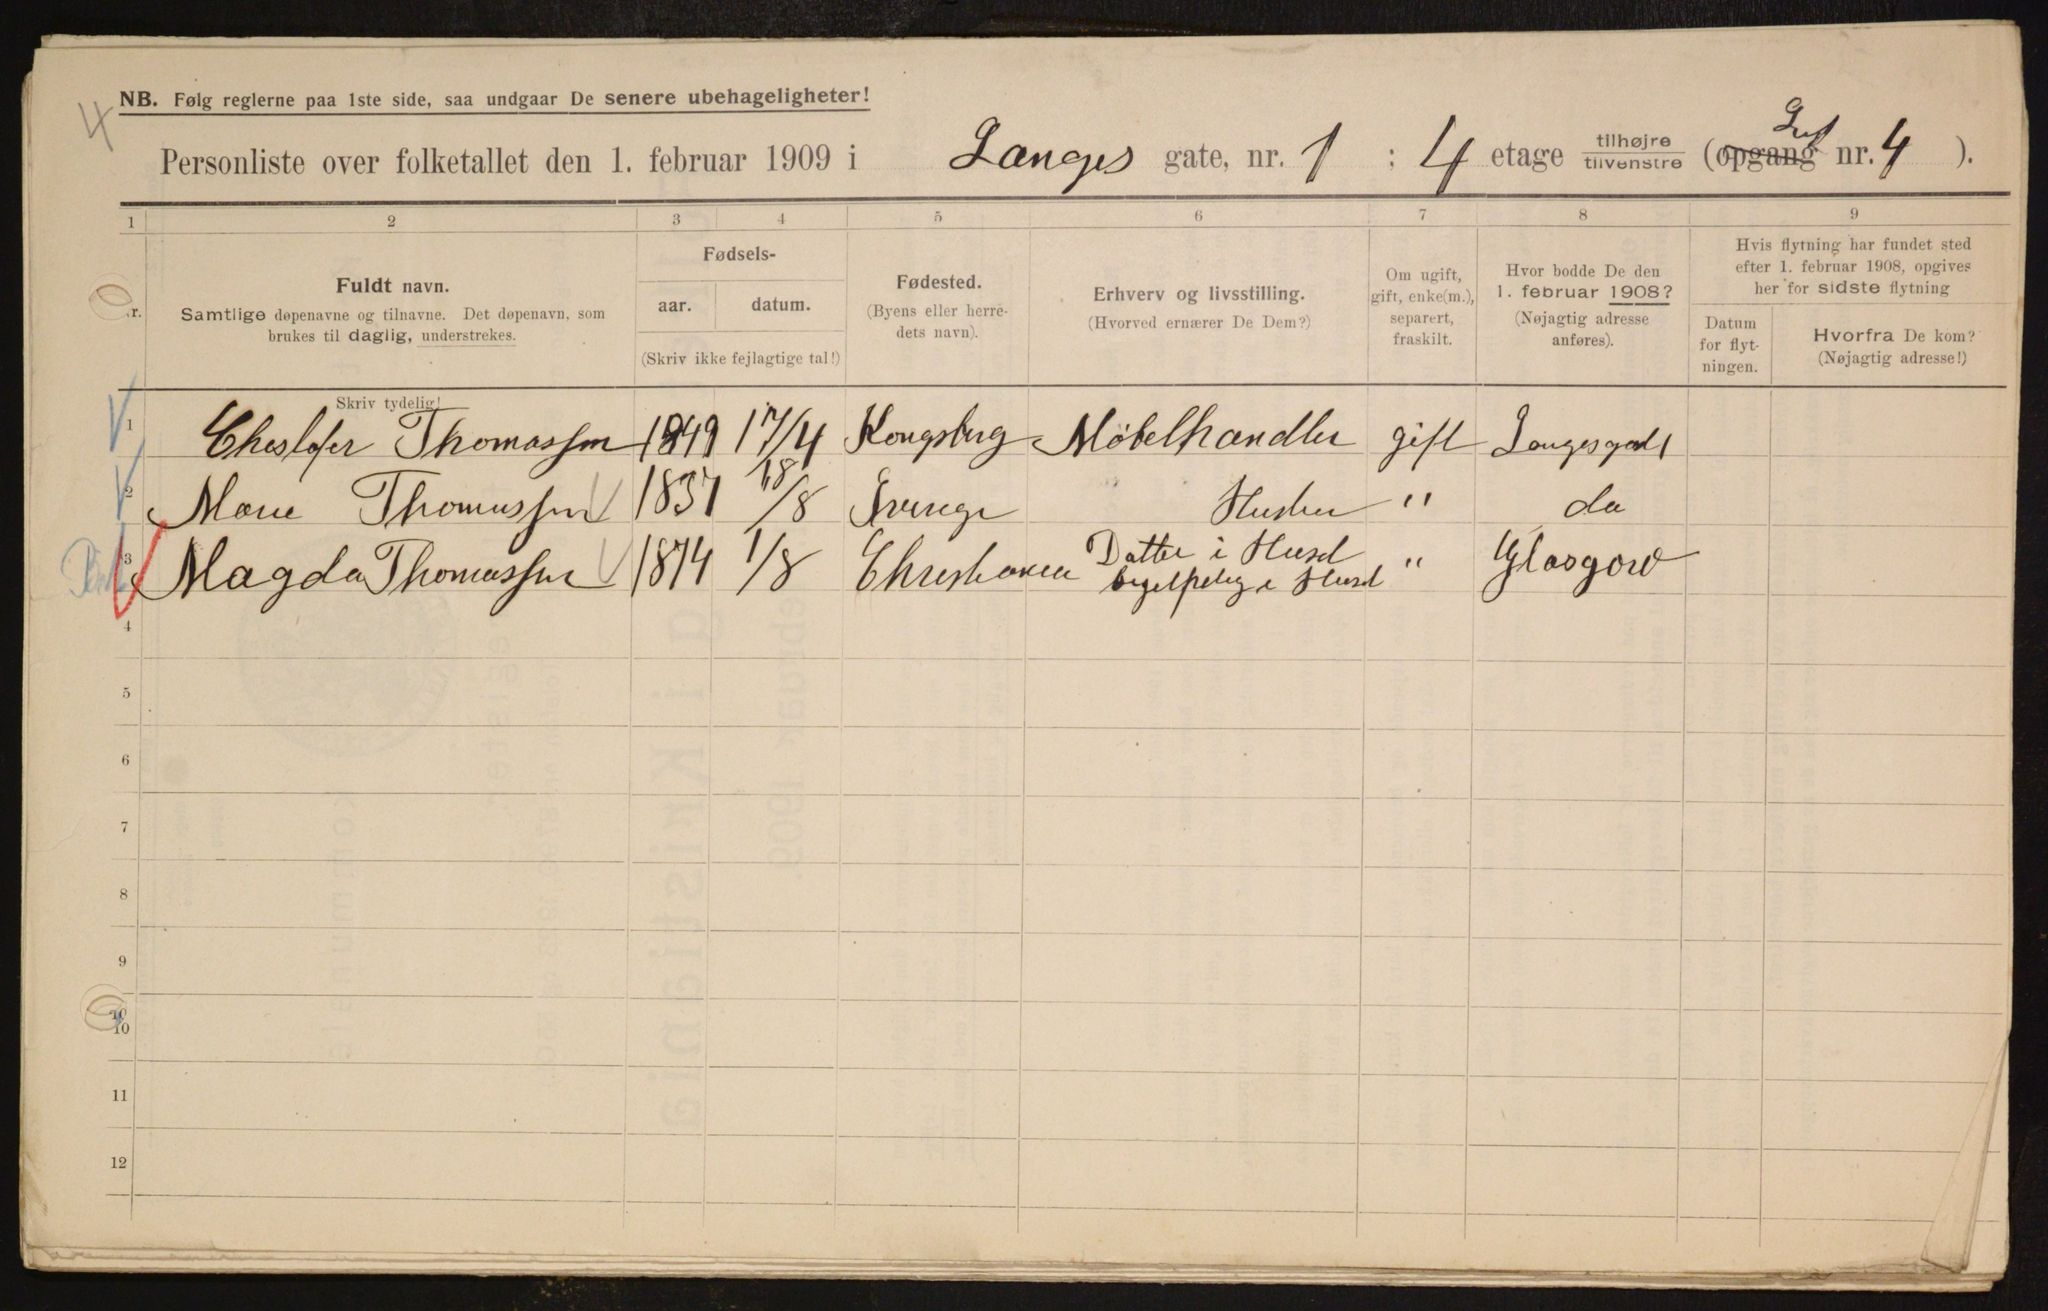 4
NB. Følg reglerne paa 1ste side, saa undgaar De senere ubehageligheter!
Personliste over folketallet den 1. februar 1909 i Langes gate, nr. 1 ; 4 etage tilhøjre tilvenstre (opgang nr. 4 ).
1 2 3 4 5 6 7 8 9
Nr.
Fuldt navn.
Samtlige døpenavne og tilnavne. Det døpenavn, som
brukes til daglig, understrekes.
Fødsels-
aar. datum.
(Skriv ikke fejlagtige tal!)
Fødested.
(Byens eller herre-
dets navn).
Erhverv og livsstilling.
(Hvorved ernærer De Dem?)
Om ugift,
gift, enke(m.),
separert,
fraskilt.
Hvor bodde De den
1. februar 1908?
(Nøjagtig adresse
anføres).
Hvis flytning har fundet sted
efter 1. februar 1908, opgives
her for sidste flytning
Datum
for flyt-
ningen.
Hvorfra De kom?
(Nøjagtig adresse!)
Skriv tydelig!
1 Thomassen 1849 17/4 Kongsberg Møbelhandler gift Langesgade 1
2 Marie Thomassen 1837 18/8 Sverige Hustru " do
3 Magda Thomassen 1874 1/8 Christiania Datter i Huset i Huset " Glasgow
4
5
6
7
8
9
10
10
11
12